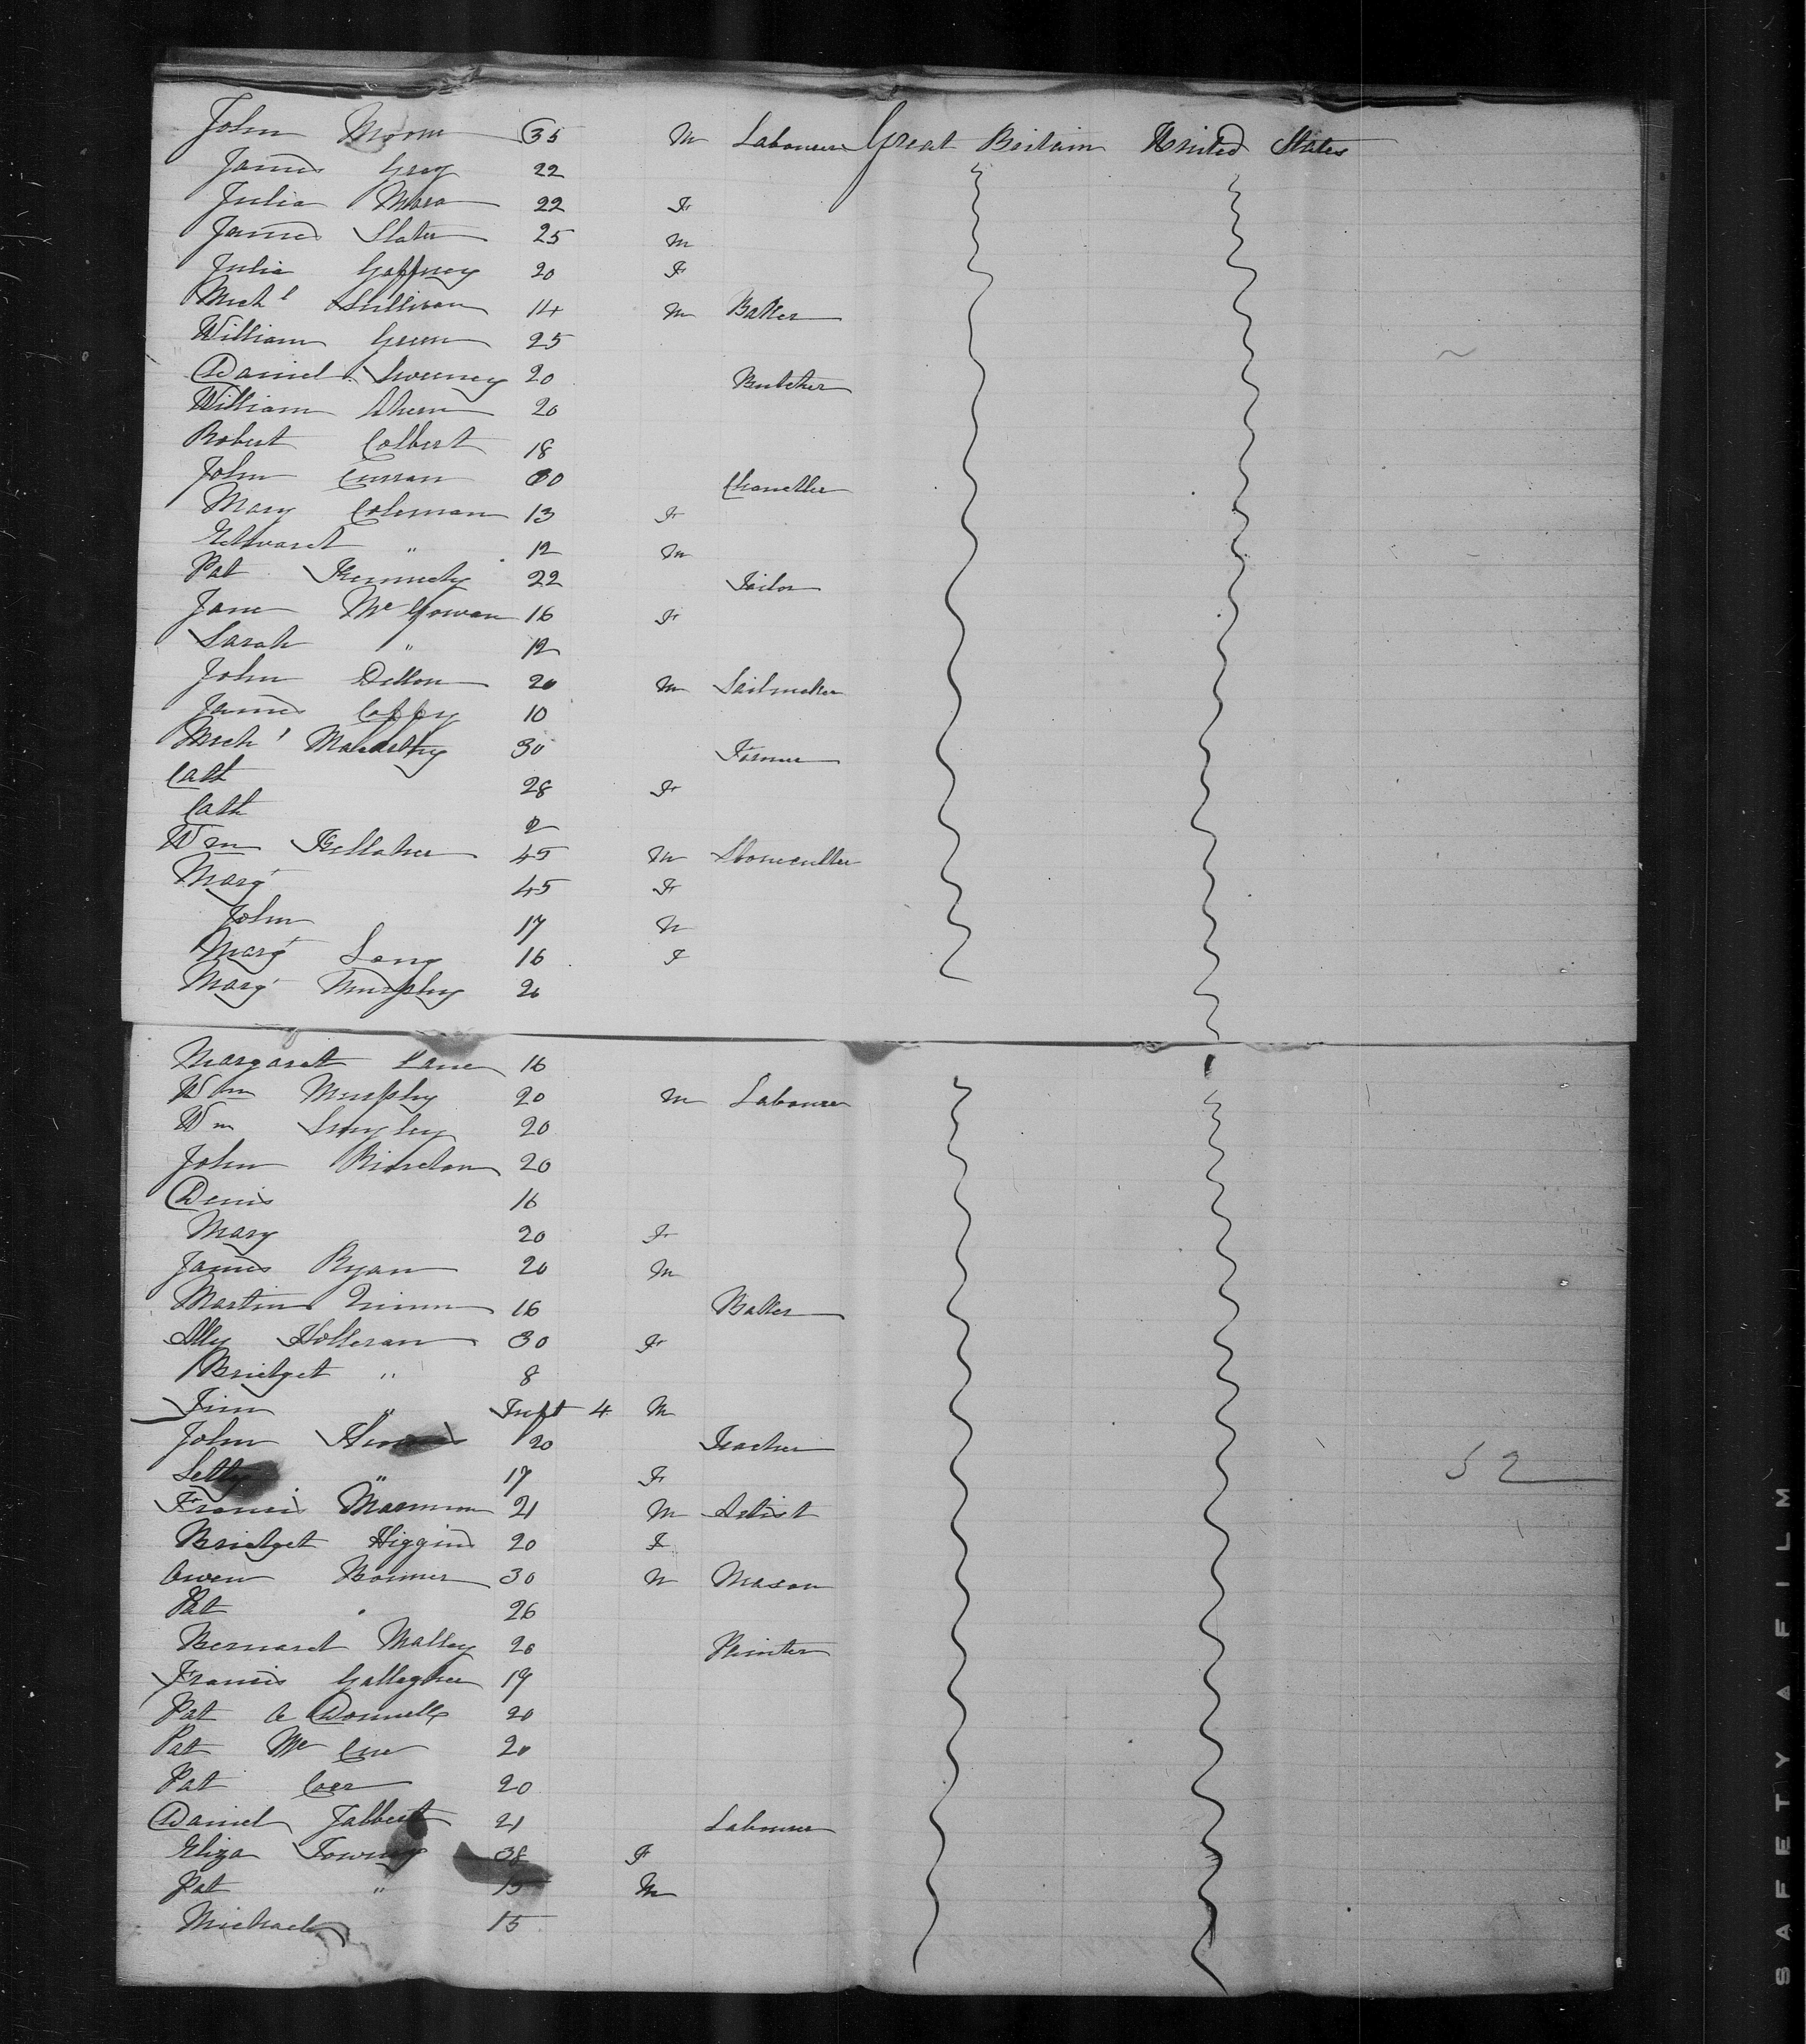 John Moore 35 M Labourer Great Britain United States
James Gray 22
Julia Mara 22 F
James Slater 25 M
Julia Gaffney 20 F
Mich<sup>l</sup> Sullivan 14 M Baker
William Green 25
Daniel Sweeney 20 Butcher
William Ahern 20
Robert Colbert 18
John Curran 30 Chandler
Mary Coleman 13 F
Edward " 12 M
Pat Kennedy 22 Tailor
Jane McGowan 16 F
Sarah " 12
John Dillon 20 M Sailmaker
James Coffey 10
Mich<sup>l</sup> Macarthy 30 Farmer
Cath 28 F
Cath 2
Wm Kellaher 45 M Stonecutter
Marg<sup>t</sup> 45 F
John 17 M
Marg<sup>t</sup> Long 16 F
Marg<sup>t</sup> Murphy 20
Margaret Lane 16
Wm Murphy 20 M Labourer
Wm 20
John Riordan 20
Denis 16
Mary 20 F
James Ryan 20 M
Martin 16 Baker
Ally Holleran 30 F
Bridget " 8
Tim " Inft 4 M
John 20 Teacher
Letty " 17 F
Francis 21 M Artist
Bridget Higgins 20 F
Owen Bonner 30 M Mason
Pat " 26
Bernard Malley 20 Printer
Francis Gallagher 19
Pat O Donnell 20
Pat Mc Cue 20
Pat Carr 20
Daniel Talbert 21 Labourer
Eliza 38 F
Pat " 15 M
Michael 15
52
SAFETY A FILM